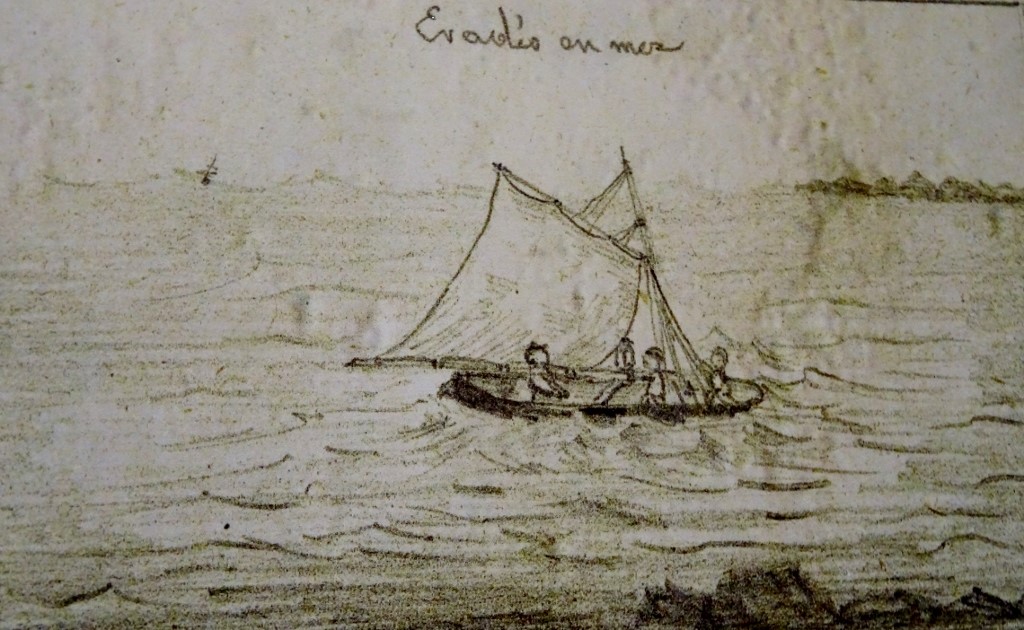 Evadés en mer